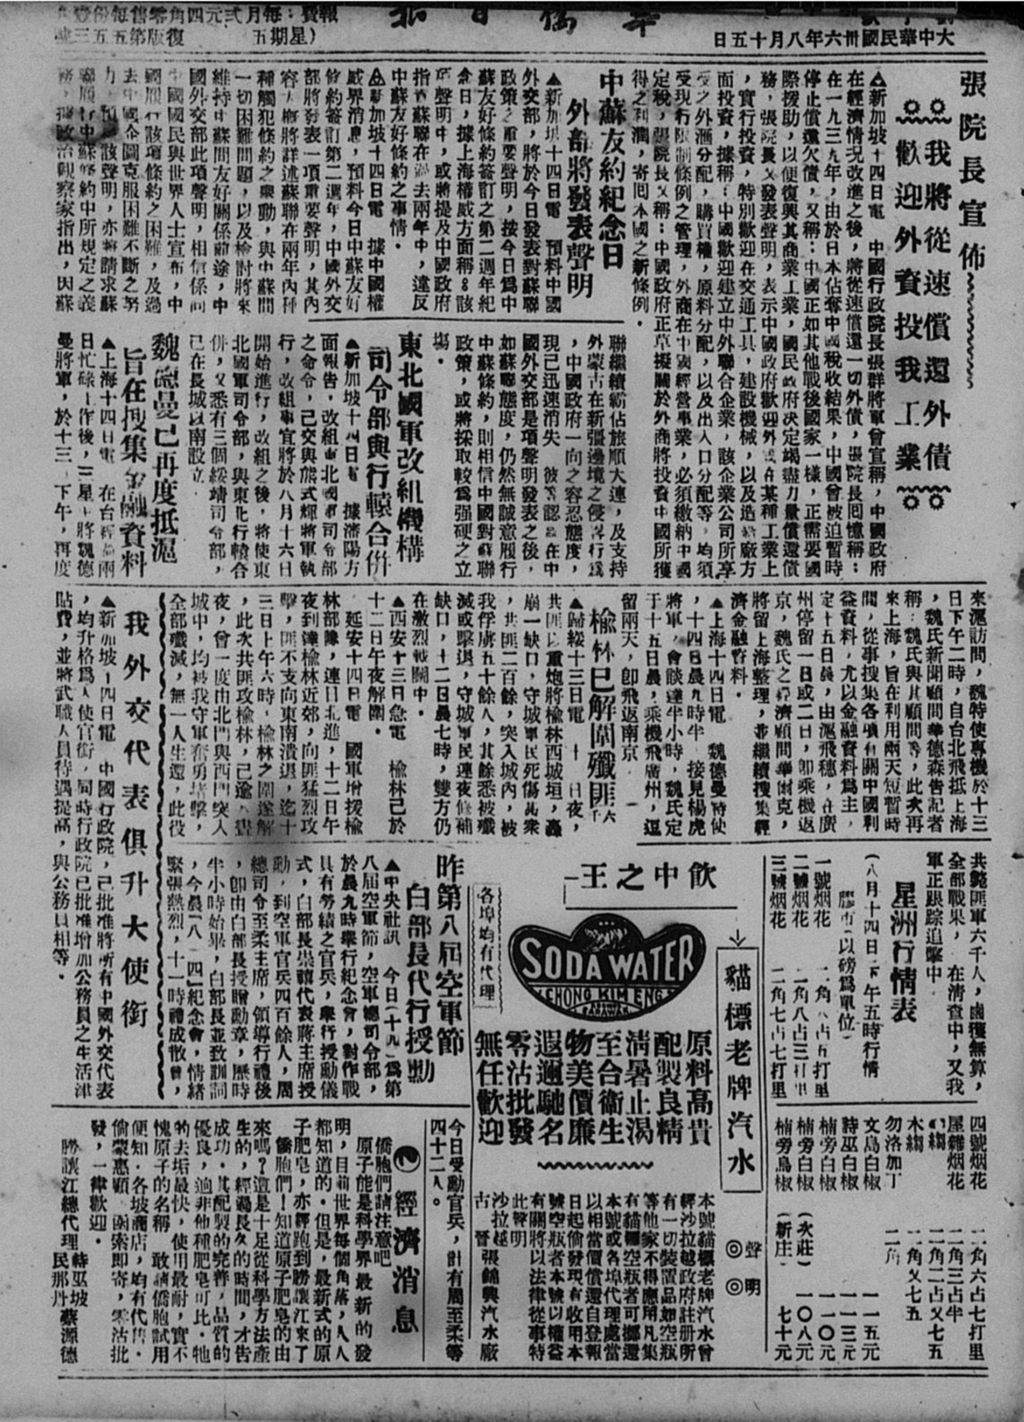 大中華民國卅六年八月十五日
華僑日報
報費:每月弍元四角零售每份壹角
(星期五)
復版第五五三號
張院長宣佈
我將從速償還外債
歡迎外資投我工業
▲新加坡十四日電　中國行政院長張群將軍曾宣稱,中國政府
在經濟情況改進之後,將從速償還一切外債,張院長囘憶稱:
在一九三九年,由於日本佔奪中國稅收結果,中國曾被迫暫時
停止償還欠債,又稱:中國正如其他戰後國家一樣,正需要國
際援助,以便復興其商業工業,國民政府決定竭盡力量償還債
務,張院長又發表聲明,表示中國政府歡迎外資在某種工業上
,實行投資,特別歡迎在交通工具,建設機械,以及造船廠方
面投資,據稱:中國歡迎建立中外聯合企業,該企業公司所享
受之外滙分配,購買權,原料分配,以及出入口分配等,均須
受現行限制條例之管理,外商在中國經營事業,必須繳納中國
定稅,張院長又稱:中國政府正草擬關於外商將投資中國所獲
得之利潤,寄囘本國之新條例。
中蘇友約紀念日
外部將發表聲明
▲新加坡十四日電　預料中國
外交部,將於今日發表對蘇聯
政策之重要聲明,按今日爲中
蘇友好條約簽訂之第二週年紀
念日,據上海權威方面稱:該
聲明中,或將提及中國政府
指責蘇聯在過去兩年中,違反
中蘇友好條約之事情。
▲新加坡十四日電　據中國權
威界消息,預料今日中蘇友好
條約簽訂第二週年,中國外交
部將發表一項重要聲明,其內
容大概將詳述蘇聯在兩年內種
種觸犯條約之舉動,與中蘇間
一切困難問題,以及檢討將來
維持中蘇間友好關係前途,中
國外交部此項聲明,相信係向
中國國民與世界人士宣布,中
國履行該項條約之困難,及過
去中國企圖克服困難不斷之努
力,預該聲明,亦將請求蘇
聯履行中蘇條約中所規定之義
務,據政治觀察家指出,因蘇
聯繼續霸佔旅順大連,及支持
外蒙古在新疆邊境之侵畧行爲
,中國政府一向之容忍態度,
現已迅速消失　彼等認爲在中
國外交部是項聲明發表之後,
如蘇聯態度,仍然無誠意履行
中蘇條約,則相信中國對蘇聯
政策,或將採取較爲强硬之立
塲。
東北國軍改組機構
司令部與行轅合併
▲新加坡十四日電　據瀋陽方
面報告,改組東北國軍司令部
之命令,已交與熊式輝將軍執
行,改組事宜將於八月十六日
開始進行,改組之後,將使東
北國軍司令部,與東北行轅合
併,又悉有三個綏靖司令部,
已在長城以南設立。
魏德曼已再度抵滬
旨在搜集金融資料
▲上海十四日電　在台灣兩
日忙碌工作後,三星上將魏德
曼將軍,於十三　下午,再度
來滬訪問,魏特使專機於十三
日下午二時,自台北飛抵上海
,魏氏新聞顧問華德森告記者
稱:魏氏與其顧問等,此次再
來上海,旨在利用兩天短暫時
間,從事搜集各項有關中國利
益資料,尤以金融資料爲主,
定十五日晨,由滬飛穗,在廣
州停留一日或二日,卽乘機返
京,魏氏之經濟顧問華爾克,
將留上海整理,並繼續搜集經
濟金融資料。
▲上海十四日電　魏德曼特使
,十四日晨九時半　接見楊虎
將軍,會談達半小時,魏氏定
于十五日晨,乘機飛廣州,逗
留兩天,卽飛返南京
榆林已解圍殲匪六千
▲歸綏十三日電　十一日夜,
共匪以重炮將榆林西城垣,轟
崩一缺口,守城軍民死傷甚衆
,共匪二百餘,突入城內,被
我俘虜五十餘人,其餘悉被殲
滅或擊退,守城軍民連夜修補
缺口,十二日晨七時,雙方仍
在激烈戰鬥中。
▲西安十三日急電　榆林已於
十二日午夜解圍。
延安十四日電　國軍增援榆
林部隊,連日北進,十二日午
夜到達榆林近郊,向匪猛烈攻
擊,匪不支向東南潰退,迄十
三日上午六時,榆林之圍遂解
,此次共匪攻榆林,已逾一晝
夜,曾一度由北門與西門突入
城中,均被我守軍奮勇堵擊,
全部殲滅,無一人生還,此役
共斃匪軍六千人,鹵獲無算,
全部戰果,在清查中,又我
軍正跟踪追擊中。
我外交代表俱升大使銜
▲新加坡十四日電　中國行政院,已批准將所有中國外交代表
,均升格爲大使官銜,同時行政院已批准增加公務員之生活津
貼費,並將武職人員待遇提高,與公務員相等。
昨第八屆空軍節
白部長代行授勳
▲中央社訊　今日(十四)爲第
八屆空軍節,空軍總司令部,
於晨九時舉行紀念會,對作戰
具有勞績之官兵,舉行授勳儀
式,白部長崇禧代表蔣主席授
勳,到空軍官兵四百餘人,周
總司令至柔主席,領導行禮後
,卽由白部長授贈勳章,歷時
半小時始畢,白部長並致訓詞
,今晨「八一四」紀念會,情緒
緊張熱烈,十一時禮成散會,
今日受勳官兵,計有周至柔等
四十二人。
星洲行情表
(八月十四日下午五時行情
膠市(以磅爲單位)
一號烟花
二號烟花
三號烟花　二角七占七打里
四號烟花　二角六占七打里
屋雜烟花　二角三占半
木縐　一角乂七五
勿洛加丁　二角
文島白椒　一一五元
特巫白椒　一一三元
楠旁白椒　一一〇元
楠旁白椒(次莊)　一〇八元
楠旁烏椒(新庄)　七十元
飲中之王
各埠均有代理
SODA WATER
CHONG KIM ENG
SARAWAK
貓標老牌汽水
原料高貴
配製良精
清暑止渴
至合衛生
物美價廉
遐邇馳名
零沽批發
無任歡迎
◎聲明◎
本號貓標老牌汽水曾
經沙拉越政府註册所
有一切裝置品如空瓶
等他家不得應用凡集
有貓標空瓶者可擲還
本號或各埠代理處當
以相當價償還自登報
日起倘發現有收用本
號空瓶者本號以權益
有關將以法律從事特
此聲明
沙拉越
古晉張錦興汽水廠
經濟消息
僑胞們請注意吧
原子能是科學界最新的發
明,目前世界每個角落,人人
都知道的。但是,最新式的原
子肥皂,亦經跑到勝讓江來了
僑胞們!知道原子肥皂的由
來嗎?這是十足從科學方法產
生的,經過長久的時間,才告
成功。其配製的完善,品質的
優良,迥非他種肥皂可比。牠
的去垢最快,使用最耐,實不
愧原子的名稱。敢請僑胞試用
便知。各坡商店,均有代售。
倘蒙惠顧,函索即寄,零沽批
發,一律歡迎。
勝讓江總代理　特巫坡
民那丹蔡源德